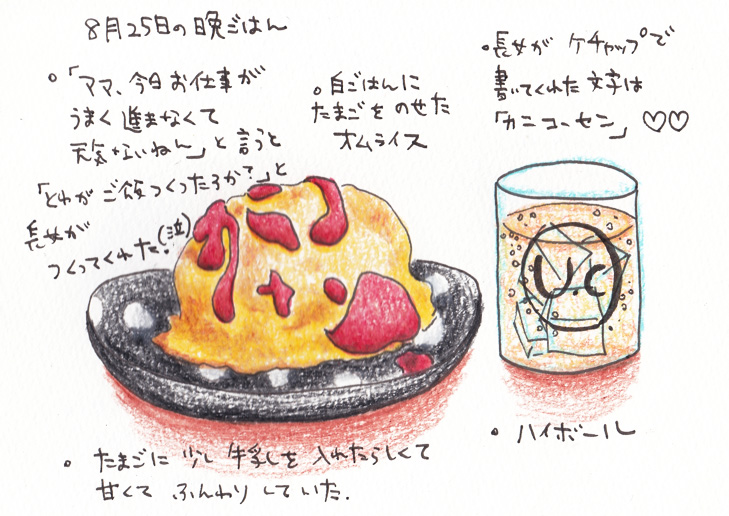 8月25日の晩ごはん
。「ママ、今日お仕事が
うまく進まなくて
元気ないねん」と言うと
「とわがご飯つくったろか?」と
長女が
つくってくれた(泣)
。白ごはんに
たまごをのせた
オムライス
。長女がケチャップで
書いてくれた文字は
「カニコーセン」♡♡
U.C
。ハイボール
。たまごに少し牛乳を入れたらしくて
甘くてふんわりしていた.